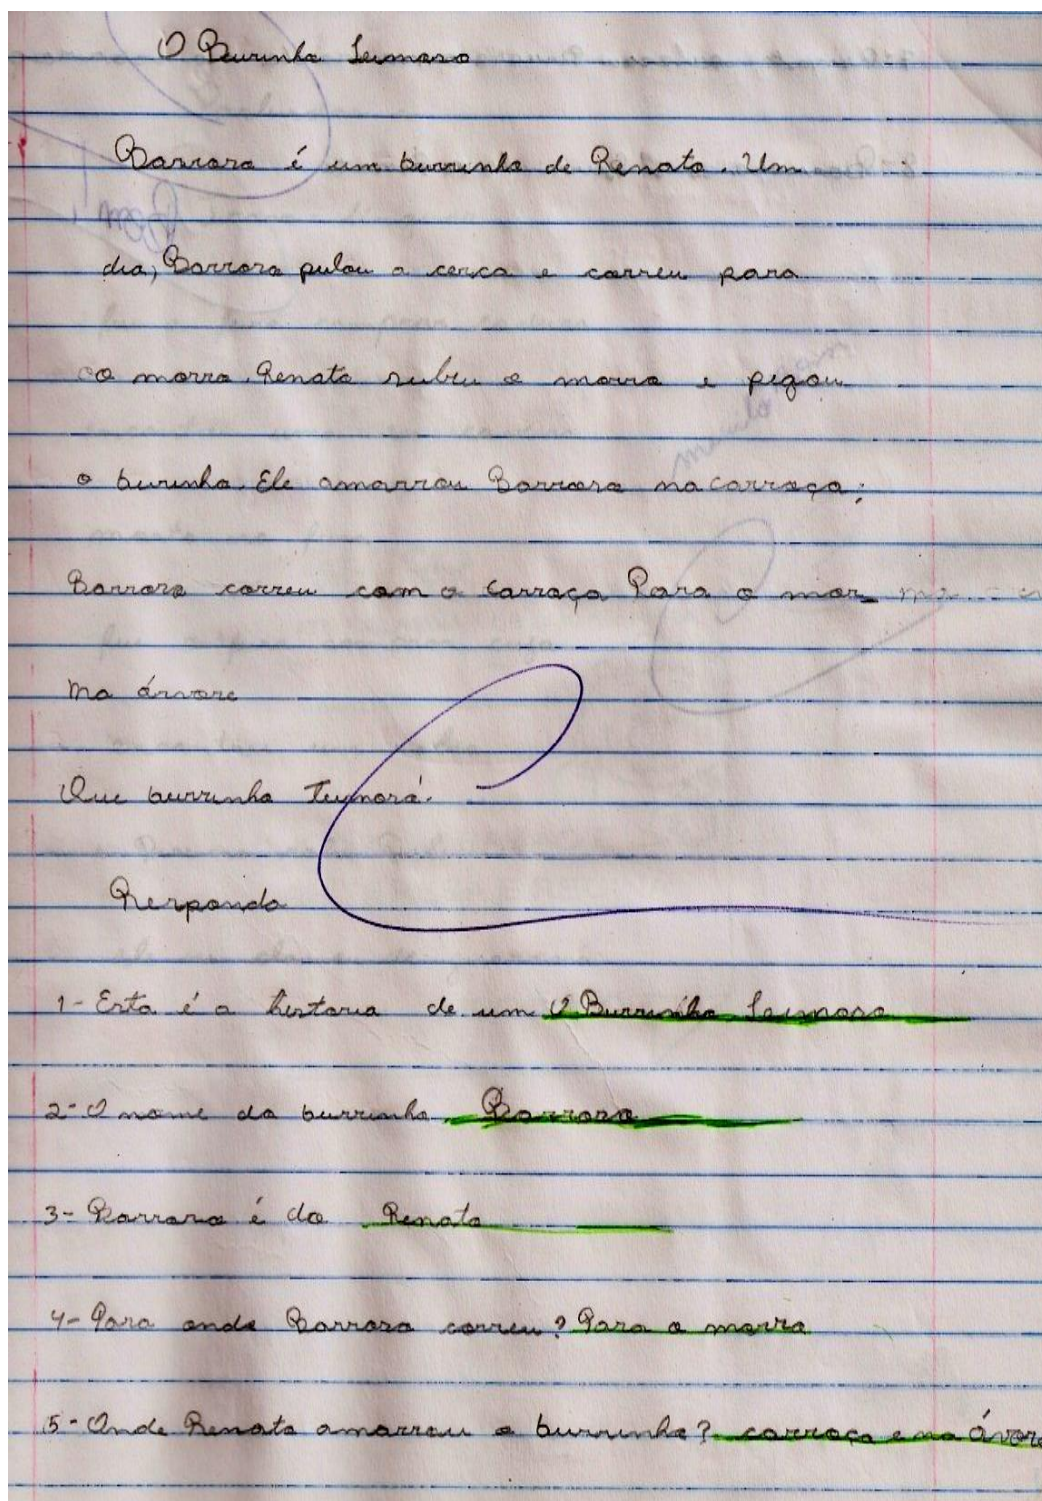 O Burrinho Teimoso
Barroso é um burrinho de Renato. Um
dia, Barroso pulou a cerca e correu para
o morro. Renato subiu o morro e pegou
o burinho. Ele amarrou Barroso na carroça.
Barroso correu com a carroça Para o mor
na árvore
Que burrinho
Responda
1- Esta é a historia de um O Burrinho Teimoso
2- O nome do burrinho Barroso
3- Barroso é do Renato
4- Para onde Barroso correu? Para o morro
5- Onde Renato amarrou o burrinho? carroça e na ávore